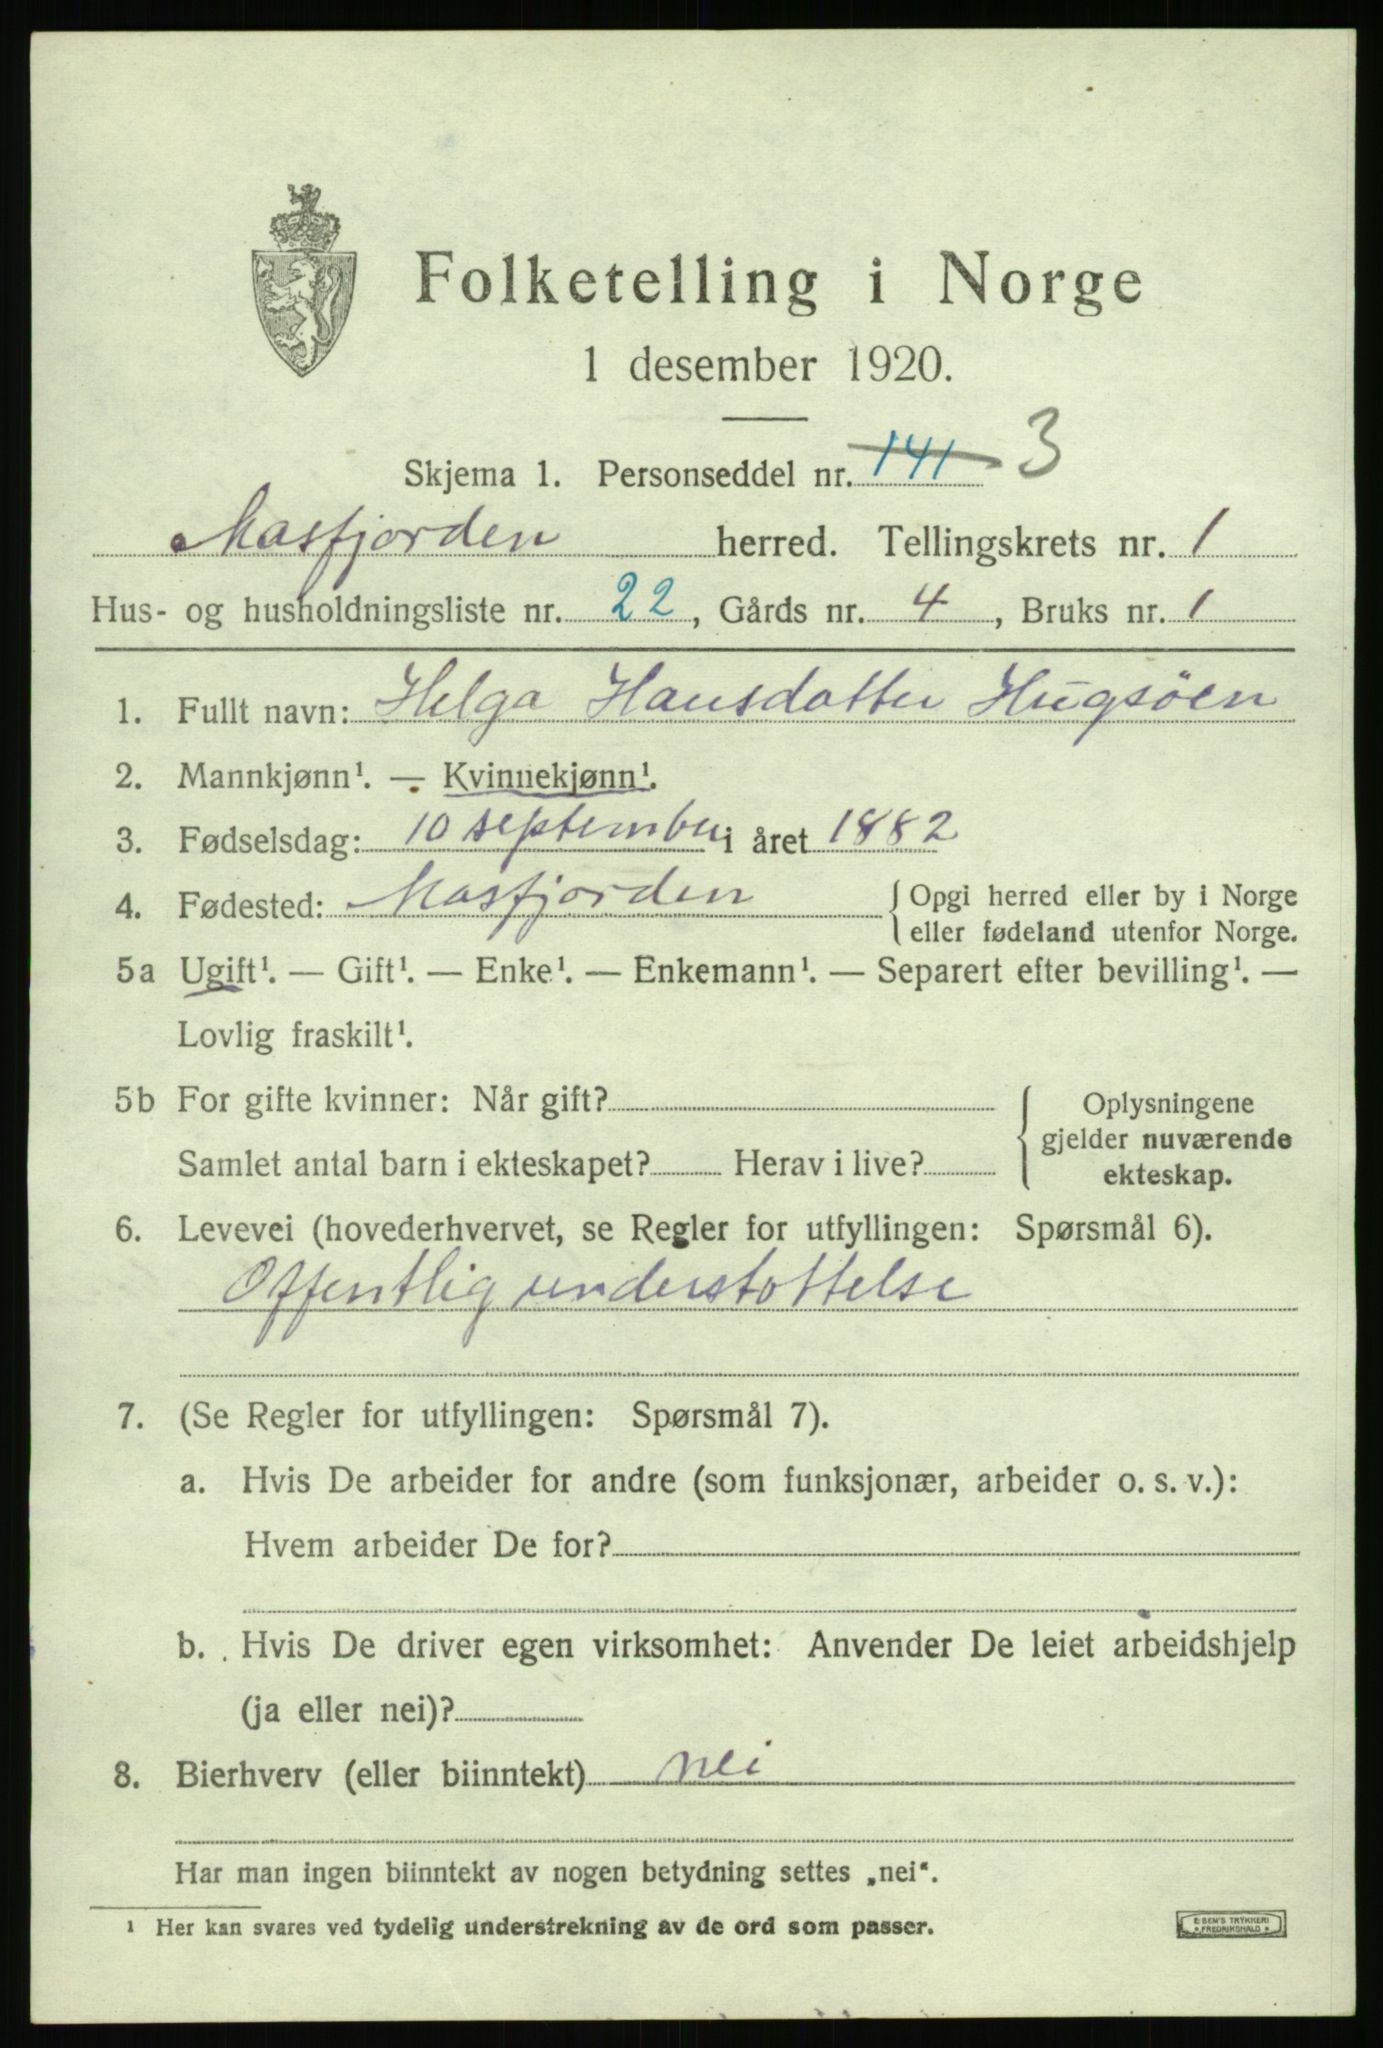 Folketelling i Norge
1 desember 1920.
Skjema 1. Personseddel nr. 141 3
Masfjorden herred. Tellingskrets nr. 1
Hus- og husholdningsliste nr. 22, Gårds nr. 4, Bruks nr. 1
1. Fullt navn: Helga Hansdatter Hugsöen
2. Mannkjønn¹. — Kvinnekjønn¹.
3. Fødselsdag: 10 september i året 1882
4. Fødested: Masfjorden { Opgi herred eller by i Norge
eller fødeland utenfor Norge.
5a Ugift¹. — Gift¹. — Enke¹. — Enkemann¹. — Separert efter bevilling¹. —
Lovlig fraskilt¹.
5b For gifte kvinner: Når gift? { Oplysningene
gjelder nuværende
Samlet antal barn i ekteskapet? Herav i live?
ekteskap.
6. Levevei (hovederhvervet, se Regler for utfyllingen: Spørsmål 6).
Offentlig understottelse
7. (Se Regler for utfyllingen: Spørsmål 7).
a. Hvis De arbeider for andre (som funksjonær, arbeider o. s. v.):
Hvem arbeider De for?
b. Hvis De driver egen virksomhet: Anvender De leiet arbeidshjelp
(ja eller nei)?
8. Bierhverv (eller biinntekt) nei
Har man ingen biinntekt av nogen betydning settes „nei“.
¹ Her kan svares ved tydelig understrekning av de ord som passer.
E. SEM'S TRYKKERI
FREDRIKSHALD